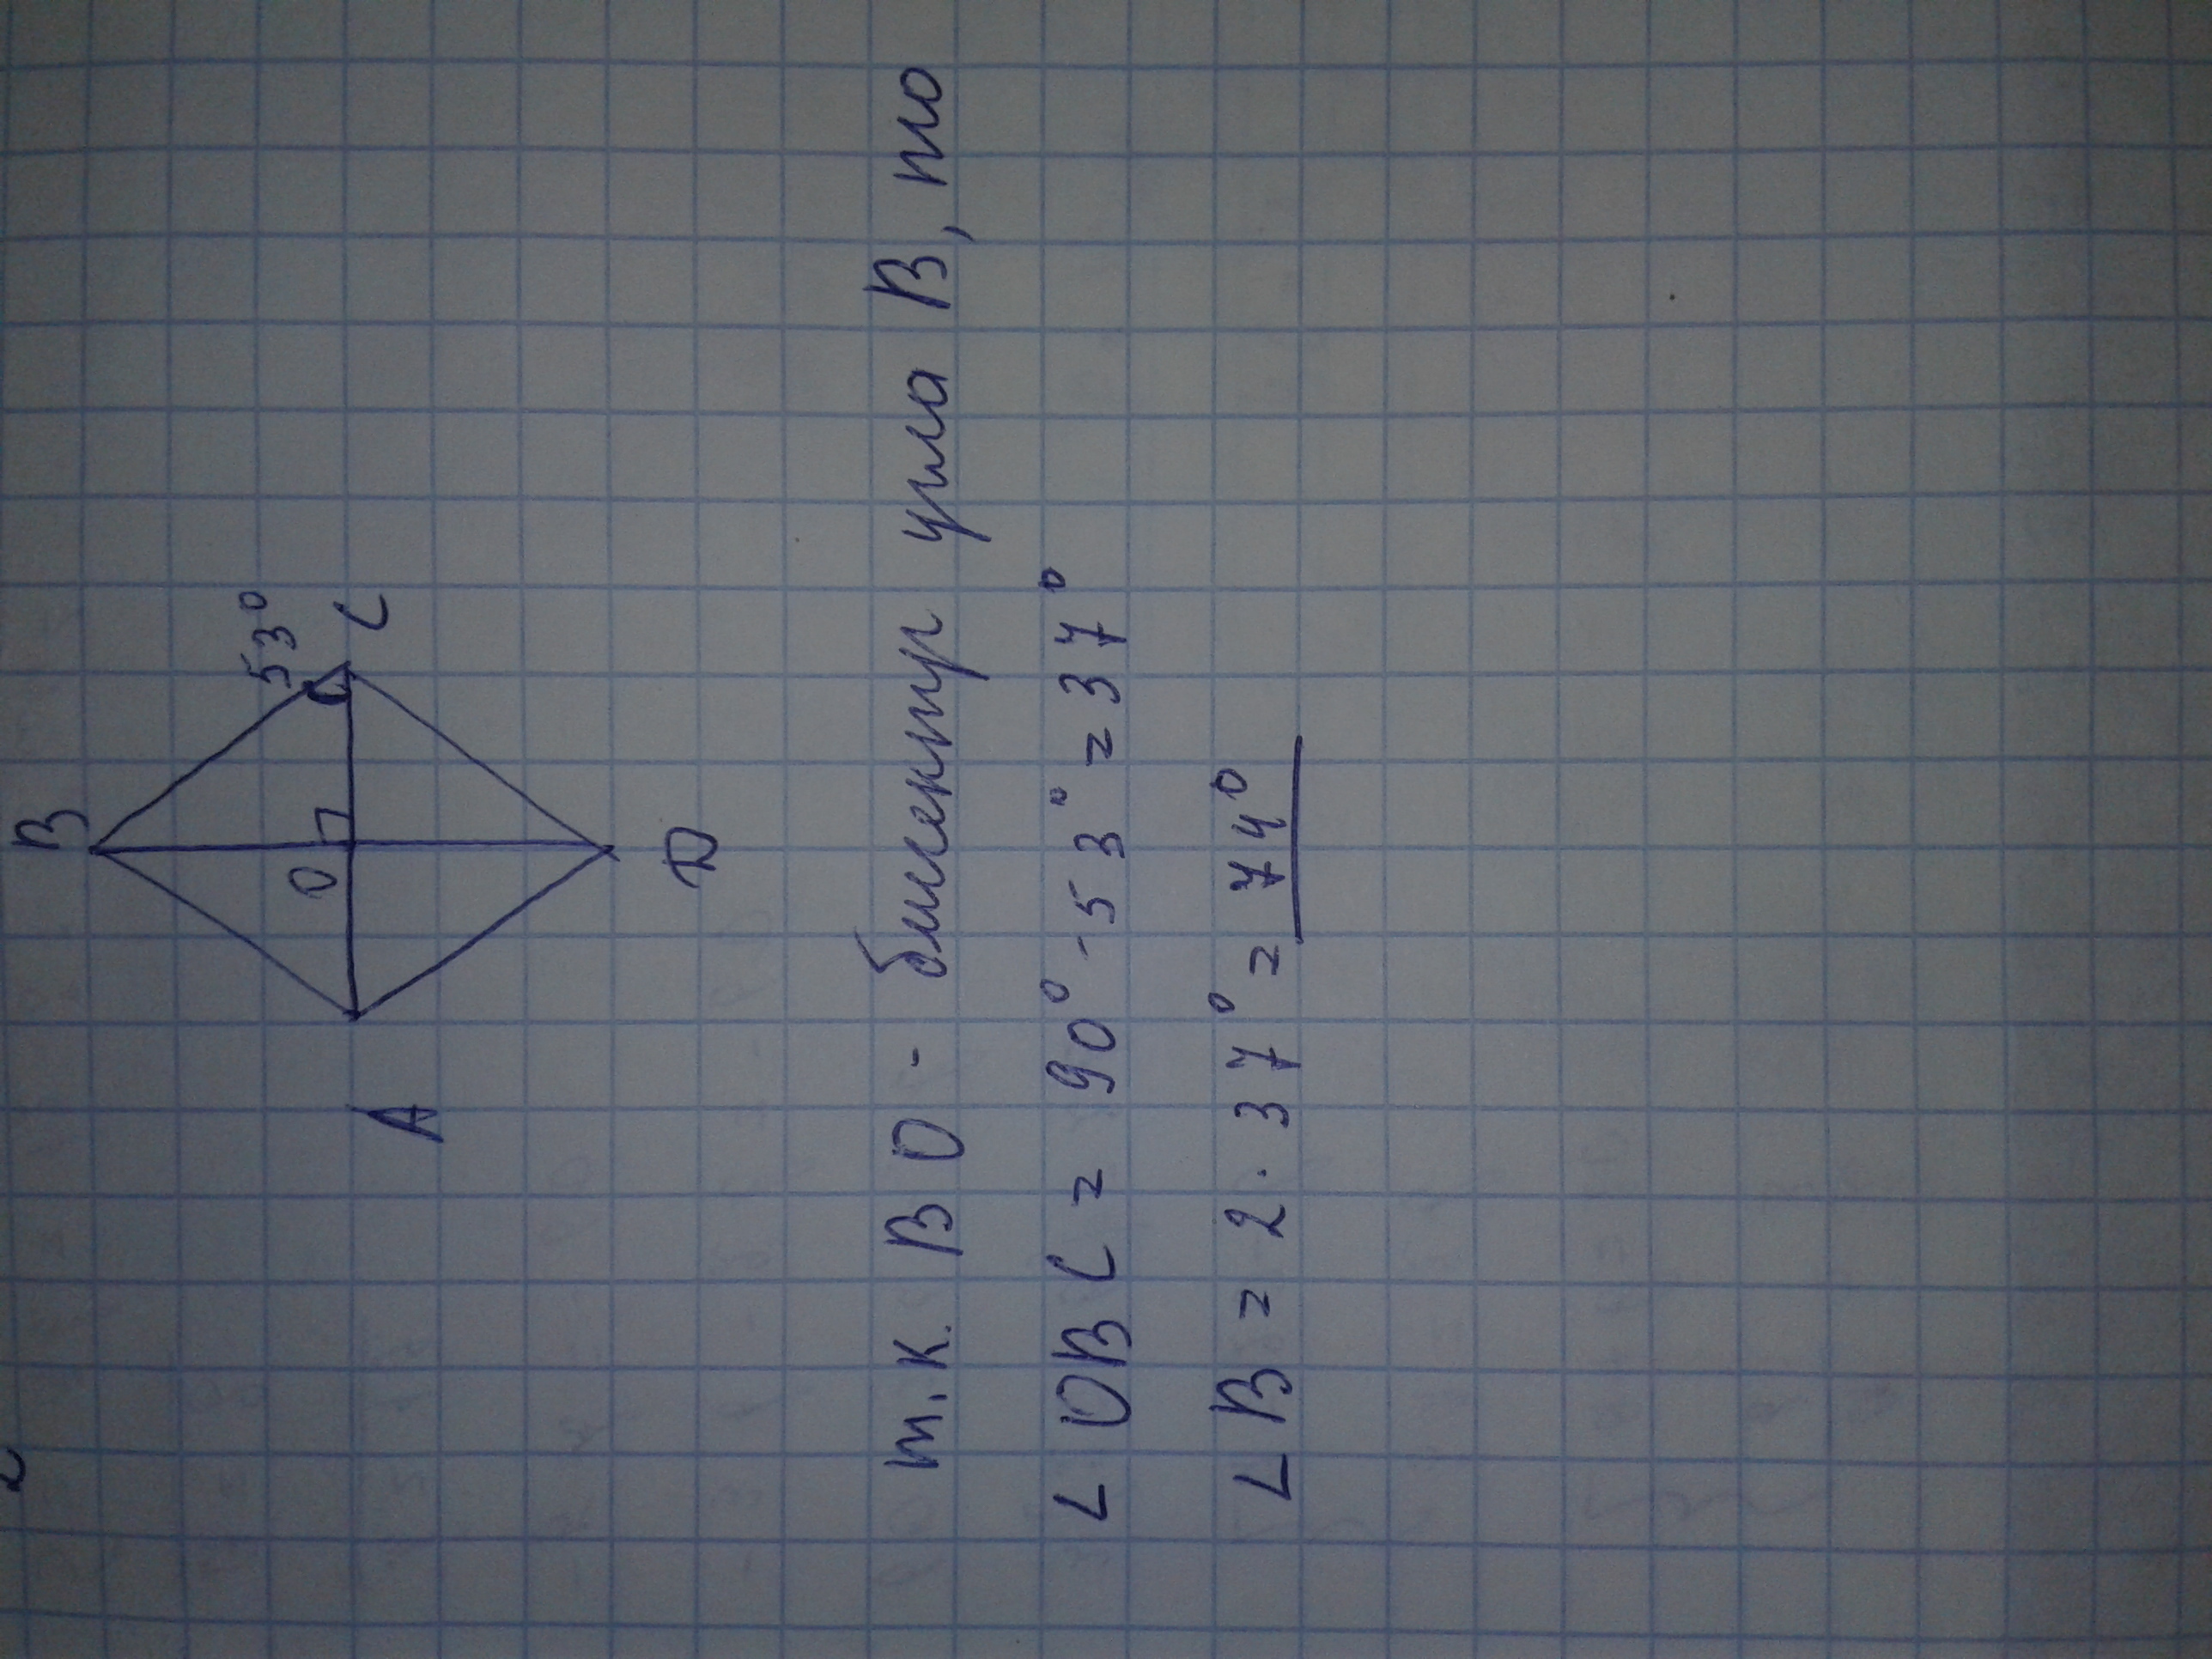 B
53°
O
C
A
D
т.к. BO - биссектр угла B, то
∠OBC = 90° - 53° = 37°
∠B = 2 · 37° = 74°